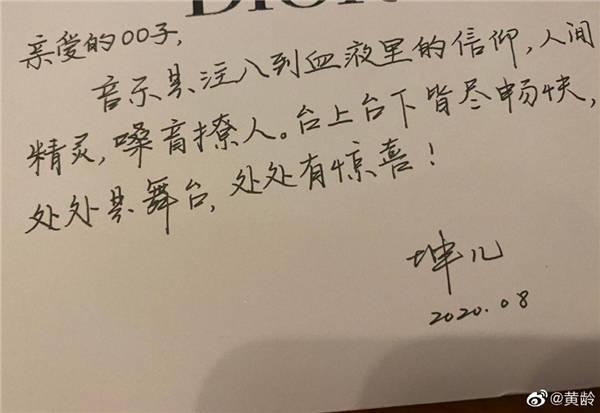 DIOR
亲爱的00子,
音乐是注入到血液里的信仰,人间
精灵,嗓音撩人。台上台下皆尽畅快,
处处是舞台,处处有惊喜!
坤儿
2020.08
@黄龄